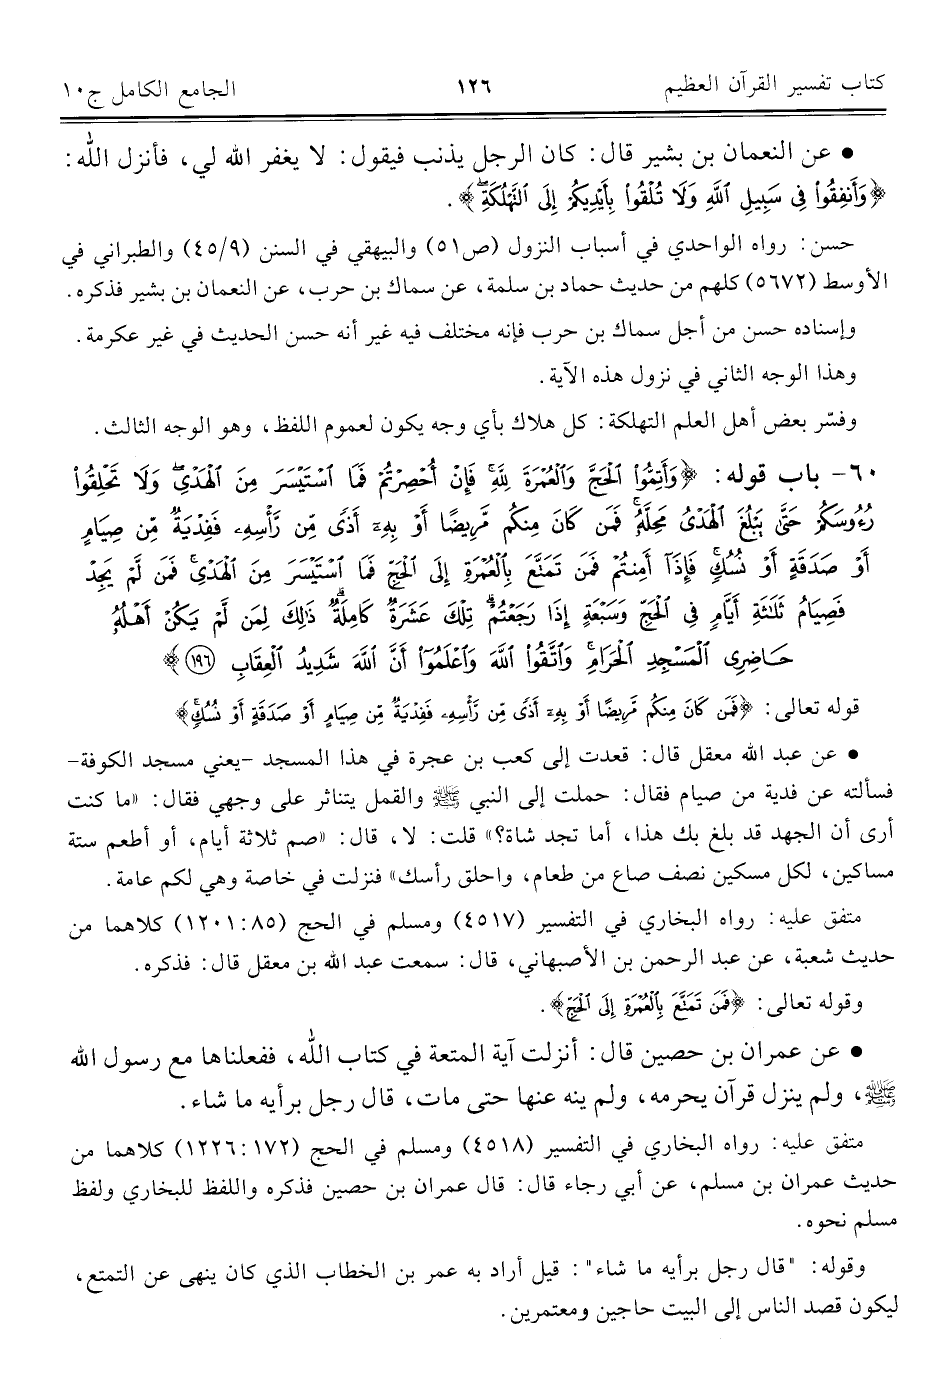 كتاب تفسير القرآن العظيم ١٢٦ الجامع الكامل ج١٠
• عن النعمان بن بشير قال: كان الرجل يذنب فيقول: لا يغفر الله لي، فأنزل الله:
﴿وَأَنفِقُوا۟ فِى سَبِيلِ ٱللَّهِ وَلَا تُلْقُوا۟ بِأَيْدِيكُمْ إِلَى ٱلتَّهْلُكَةِ ۖ﴾.
حسن: رواه الواحدي في أسباب النزول (ص٥١) والبيهقي في السنن (٤٥/٩) والطبراني في
الأوسط (٥٦٧٢) كلهم من حديث حماد بن سلمة، عن سماك بن حرب، عن النعمان بن بشير فذكره.
وإسناده حسن من أجل سماك بن حرب فإنه مختلف فيه غير أنه حسن الحديث في غير عكرمة.
وهذا الوجه الثاني في نزول هذه الآية.
وفسّر بعض أهل العلم التهلكة: كل هلاك بأي وجه يكون لعموم اللفظ، وهو الوجه الثالث.
٦٠- باب قوله: ﴿وَأَتِمُّوا۟ ٱلْحَجَّ وَٱلْعُمْرَةَ لِلَّهِ ۚ فَإِنْ أُحْصِرْتُمْ فَمَا ٱسْتَيْسَرَ مِنَ ٱلْهَدْىِ ۖ وَلَا تَحْلِقُوا۟
رُءُوسَكُمْ حَتَّىٰ يَبْلُغَ ٱلْهَدْىُ مَحِلَّهُۥ ۚ فَمَن كَانَ مِنكُم مَّرِيضًا أَوْ بِهِۦٓ أَذًى مِّن رَّأْسِهِۦ فَفِدْيَةٌ مِّن صِيَامٍ
أَوْ صَدَقَةٍ أَوْ نُسُكٍ ۚ فَإِذَآ أَمِنتُمْ فَمَن تَمَتَّعَ بِٱلْعُمْرَةِ إِلَى ٱلْحَجِّ فَمَا ٱسْتَيْسَرَ مِنَ ٱلْهَدْىِ ۚ فَمَن لَّمْ يَجِدْ
فَصِيَامُ ثَلَٰثَةِ أَيَّامٍ فِى ٱلْحَجِّ وَسَبْعَةٍ إِذَا رَجَعْتُمْ ۗ تِلْكَ عَشَرَةٌ كَامِلَةٌ ۗ ذَٰلِكَ لِمَن لَّمْ يَكُنْ أَهْلُهُۥ
حَاضِرِى ٱلْمَسْجِدِ ٱلْحَرَامِ ۚ وَٱتَّقُوا۟ ٱللَّهَ وَٱعْلَمُوٓا۟ أَنَّ ٱللَّهَ شَدِيدُ ٱلْعِقَابِ ١٩٦ ﴾
قوله تعالى: ﴿فَمَن كَانَ مِنكُم مَّرِيضًا أَوْ بِهِۦٓ أَذًى مِّن رَّأْسِهِۦ فَفِدْيَةٌ مِّن صِيَامٍ أَوْ صَدَقَةٍ أَوْ نُسُكٍ ۚ﴾
• عن عبد الله معقل قال: قعدت إلى كعب بن عجرة في هذا المسجد -يعني مسجد الكوفة-
فسألته عن فدية من صيام فقال: حملت إلى النبي ﷺ والقمل يتناثر على وجهي فقال: «ما كنت
أرى أن الجهد قد بلغ بك هذا، أما تجد شاة؟» قلت: لا، قال: «صم ثلاثة أيام، أو أطعم ستة
مساكين، لكل مسكين نصف صاع من طعام، واحلق رأسك» فنزلت في خاصة وهي لكم عامة.
متفق عليه: رواه البخاري في التفسير (٤٥١٧) ومسلم في الحج (١٢٠١:٨٥) كلاهما من
حديث شعبة، عن عبد الرحمن بن الأصبهاني، قال: سمعت عبد الله بن معقل قال: فذكره.
وقوله تعالى: ﴿فَمَن تَمَتَّعَ بِٱلْعُمْرَةِ إِلَى ٱلْحَجِّ﴾.
• عن عمران بن حصين قال: أنزلت آية المتعة في كتاب الله، ففعلناها مع رسول الله
ﷺ، ولم ينزل قرآن يحرمه، ولم ينه عنها حتى مات، قال رجل برأيه ما شاء.
متفق عليه: رواه البخاري في التفسير (٤٥١٨) ومسلم في الحج (١٢٢٦:١٧٢) كلاهما من
حديث عمران بن مسلم، عن أبي رجاء قال: قال عمران بن حصين فذكره واللفظ للبخاري ولفظ
مسلم نحوه.
وقوله: "قال رجل برأيه ما شاء": قيل أراد به عمر بن الخطاب الذي كان ينهى عن التمتع،
ليكون قصد الناس إلى البيت حاجين ومعتمرين.